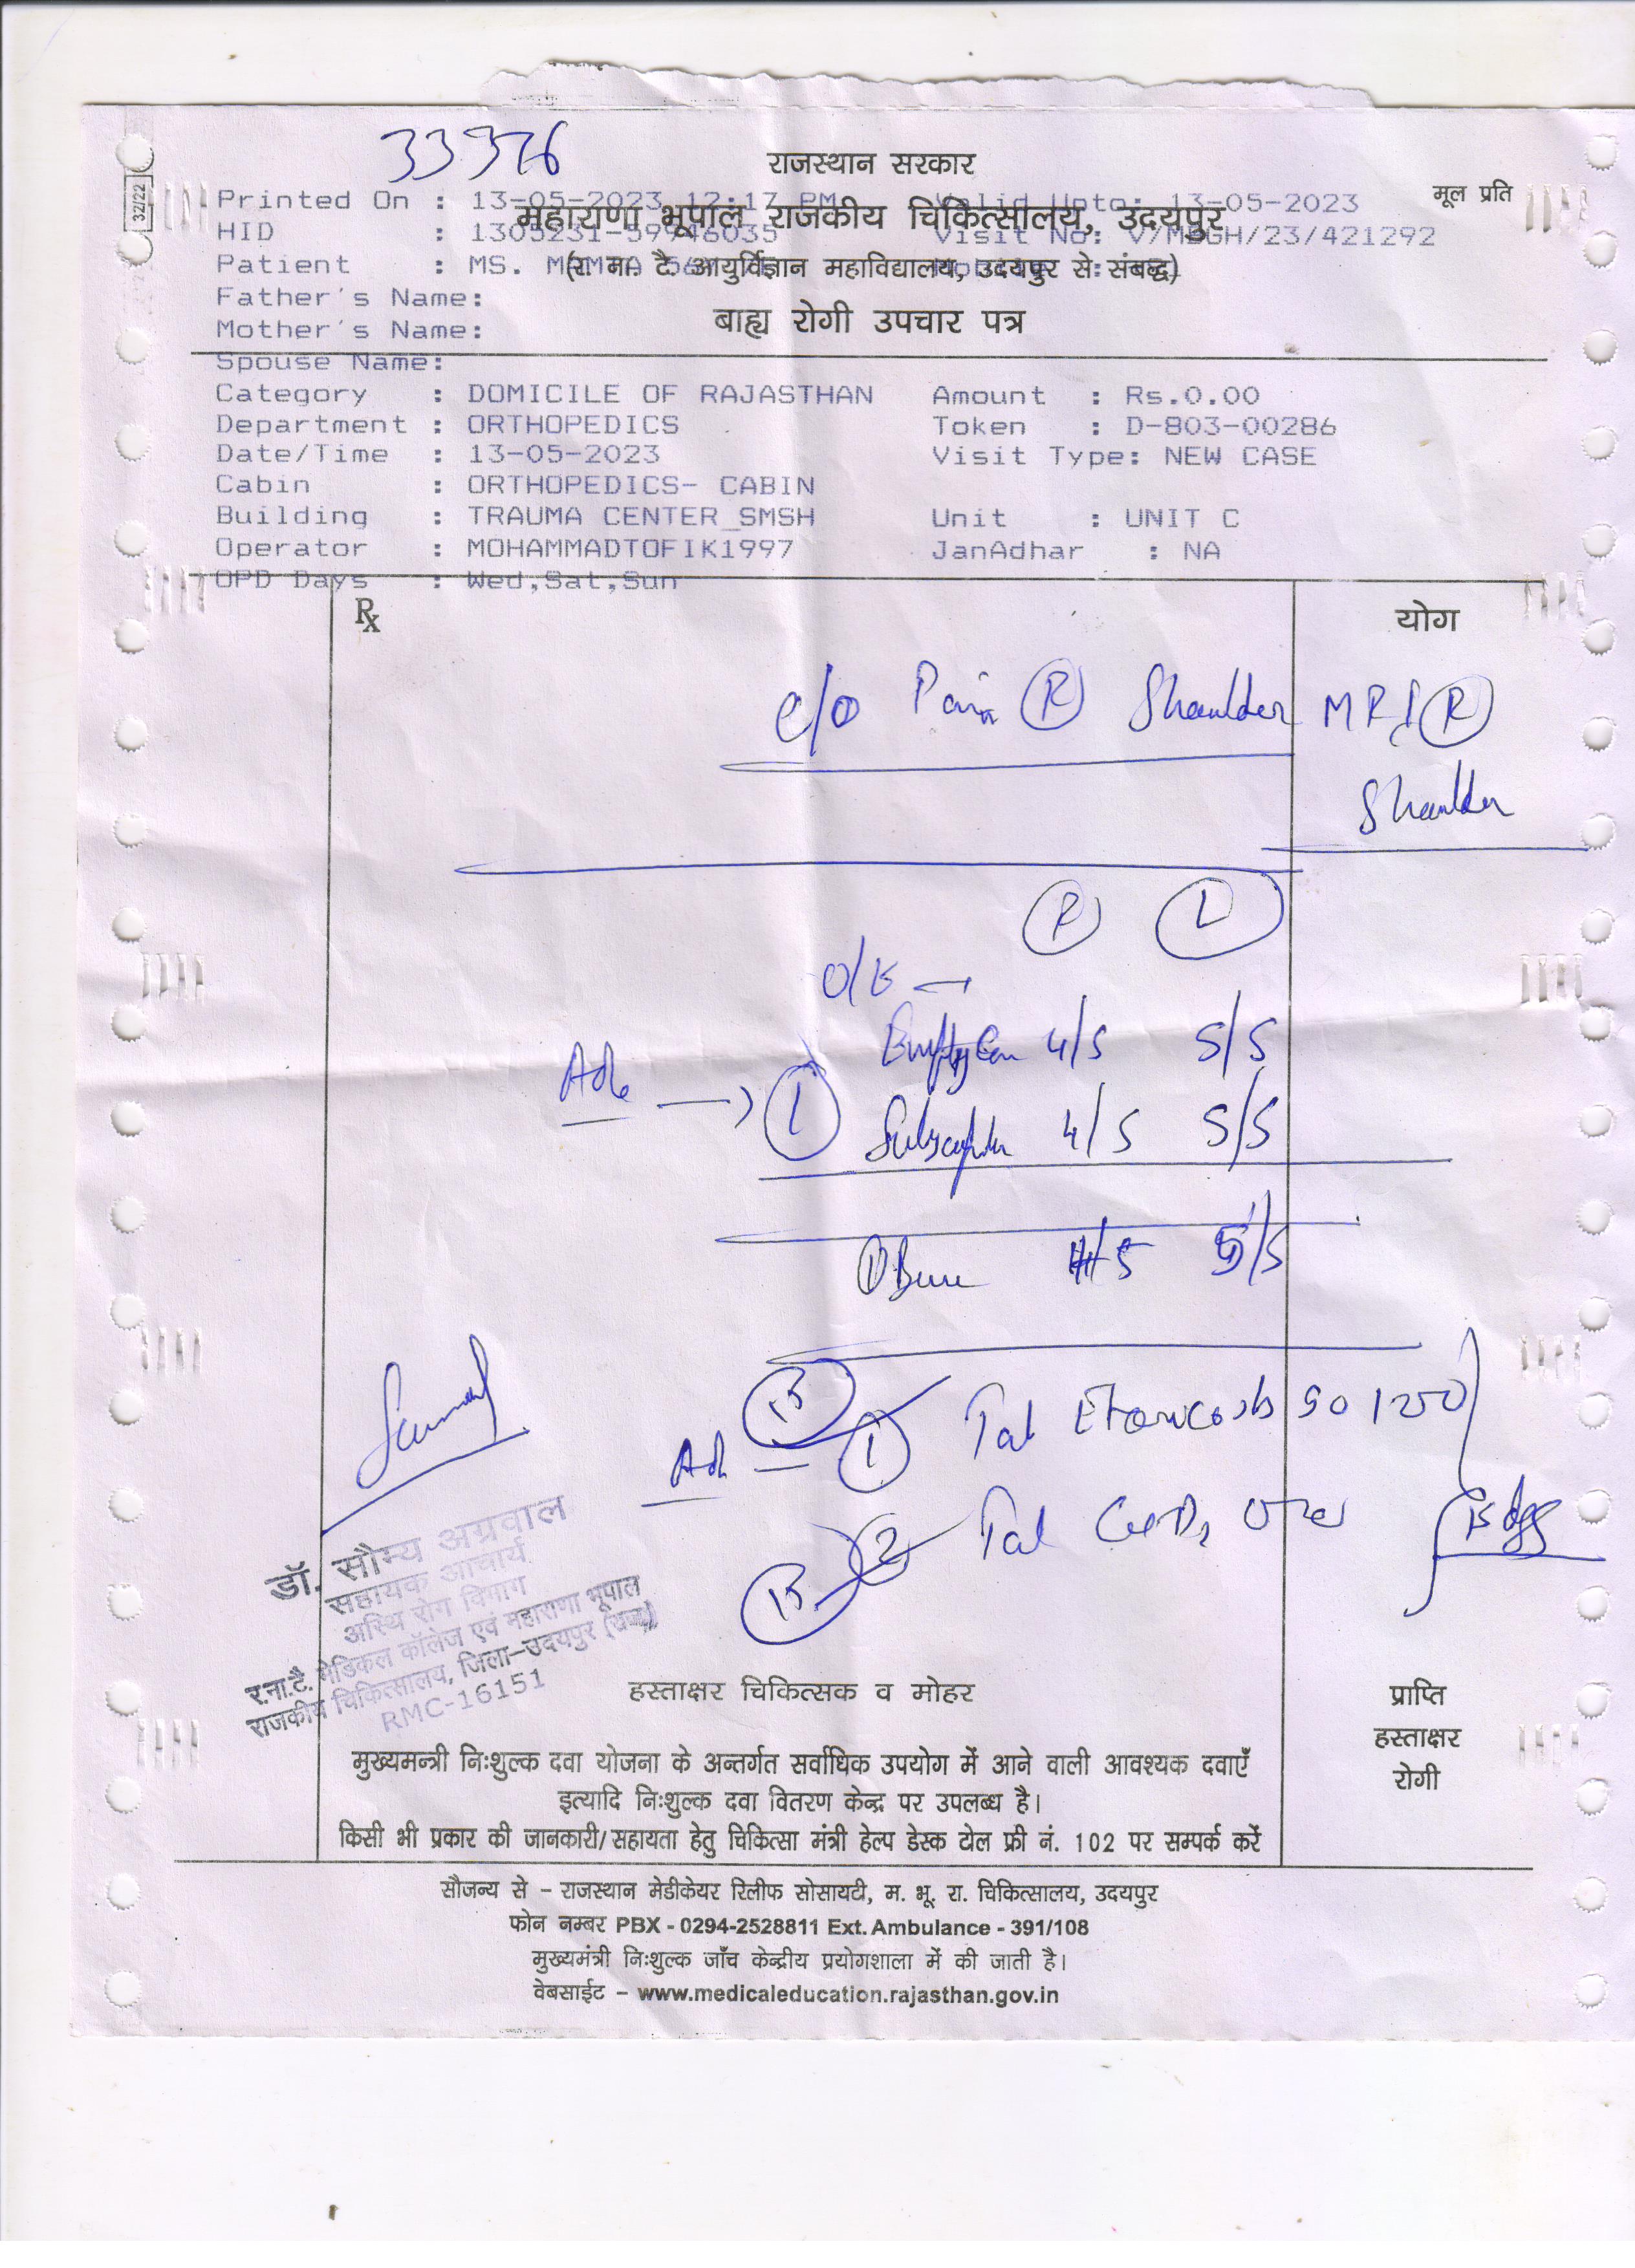 33376
राजस्थान सरकार
मूल प्रति
32/22
Printed On : 13-05-2023 12:17 PM Valid Upto: 13-05-2023
महाराणा भूपाल राजकीय चिकित्सालय, उदयपुर
HID : 1305231-59946035 Visit No: V/MBGH/23/421292
Patient : MS. MAMTA
(र. ना. टै. आयुर्विज्ञान महाविद्यालय, उदयपुर से संबद्ध)
Father's Name:
Mother's Name:
बाह्य रोगी उपचार पत्र
Spouse Name:
Category : DOMICILE OF RAJASTHAN Amount : Rs.0.00
Department : ORTHOPEDICS Token : D-803-00286
Date/Time : 13-05-2023 Visit Type: NEW CASE
Cabin : ORTHOPEDICS- CABIN
Building : TRAUMA CENTER_SMSH Unit : UNIT C
Operator : MOHAMMADTOFIK1997 JanAdhar : NA
OPD Days : Wed,Sat,Sun
Rx
योग
c/o Pain (R) Shoulder
MRI (R)
Shoulder
(R) (L)
O/E →
Empty Can 4/5 5/5
→ (1) 4/5 5/5
/5 5/5
(1) Tab 90
(2) Tab
डॉ. सौम्य अग्रवाल
सहायक आचार्य
अस्थि रोग विभाग
र.ना.टै. मेडिकल कॉलेज एवं महाराणा भूपाल
राजकीय चिकित्सालय, जिला-उदयपुर (राज.)
RMC-16151
हस्ताक्षर चिकित्सक व मोहर
प्राप्ति
हस्ताक्षर
रोगी
मुख्यमन्त्री निःशुल्क दवा योजना के अन्तर्गत सर्वाधिक उपयोग में आने वाली आवश्यक दवाएँ
इत्यादि निःशुल्क दवा वितरण केन्द्र पर उपलब्ध है।
किसी भी प्रकार की जानकारी/सहायता हेतु चिकित्सा मंत्री हेल्प डेस्क टोल फ्री नं. 102 पर सम्पर्क करें
सौजन्य से – राजस्थान मेडीकेयर रिलीफ सोसायटी, म. भू. रा. चिकित्सालय, उदयपुर
फोन नम्बर PBX - 0294-2528811 Ext. Ambulance - 391/108
मुख्यमंत्री निःशुल्क जाँच केन्द्रीय प्रयोगशाला में की जाती है।
वेबसाईट – www.medicaleducation.rajasthan.gov.in